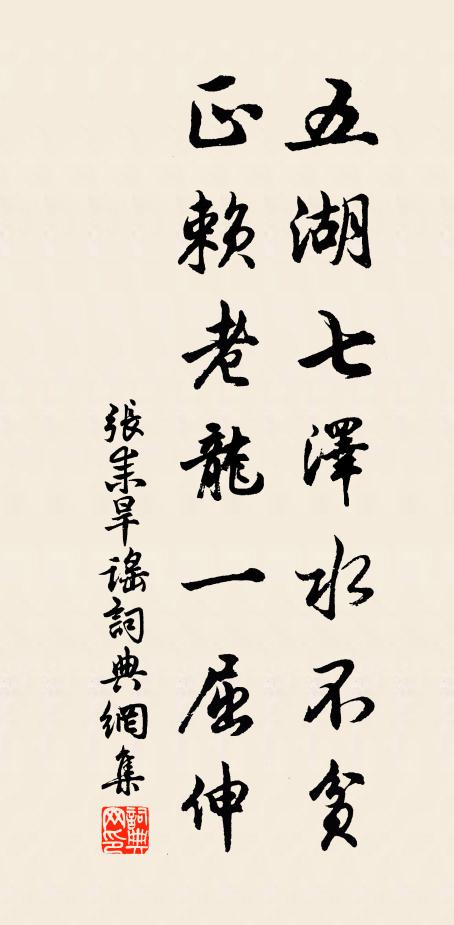 五湖七澤水不貧
正賴老龍一屈伸
張耒旱謠詞典網集
詞典网印